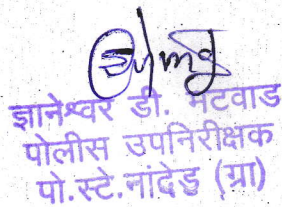 ज्ञानेश्वर डी. मटवाड
पोलीस उपनिरीक्षक
पो.स्टे.नांदेड (ग्रा)